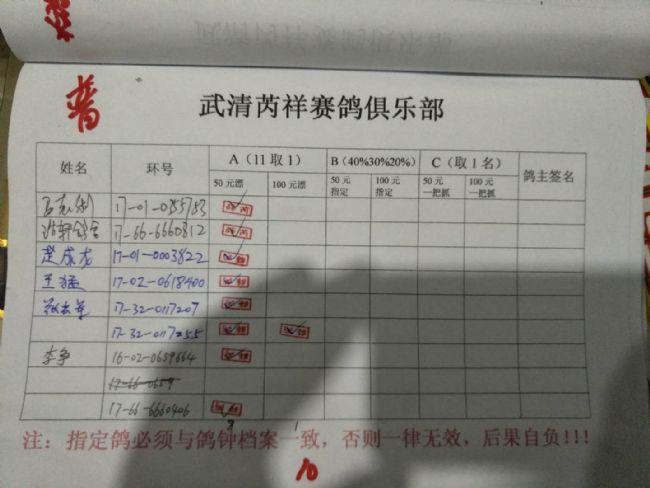 普
武清芮祥赛鸽俱乐部
姓名 环号 A（11取1） B（40%30%20%） C（取1名） 鸽主签名
50元漂 100元漂 50元指定 100元指定 50元一把抓 100元一把抓
17-01-0355783
17-66-6660812
楚成龙 17-01-0003822
王猛 17-02-0618400
17-32-0117207
17-32-0117255
李争 16-02-0659664
17-66-0659
17-66-6660406
注：指定鸽必须与鸽钟档案一致，否则一律无效，后果自负!!!
10